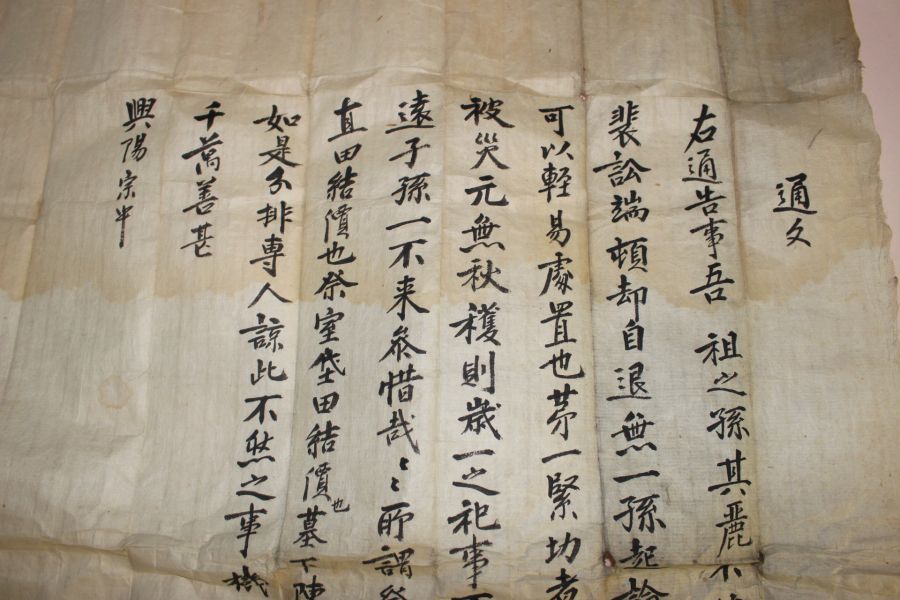 通文
右通告事吾 祖之孫其麗不
裴訟端頓却自退無一孫起
可以輕易處置也苐一緊功者
被災元無秋穫則歲一之祀事
遠子孫一不来叅惜哉〻所謂
直田結價也祭室垈田結價也墓下陳
如是分排專人諒此不然之事機
千萬善甚
興陽宗中